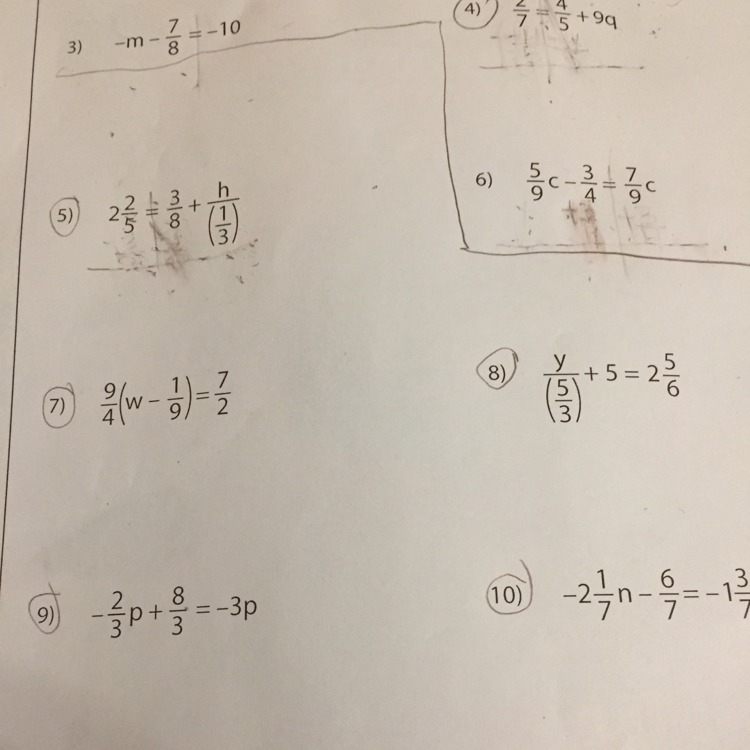 3) –m – 7/8 = –10
4) 2/7 = 4/5 + 9q
5) 2 2/5 = 3/8 + h/(1/3)
6) 5/9 c – 3/4 = 7/9 c
7) 9/4 (w – 1/9) = 7/2
8) y/(5/3) + 5 = 2 5/6
9) –2/3 p + 8/3 = –3p
10) –2 1/7 n – 6/7 = –1 3/7